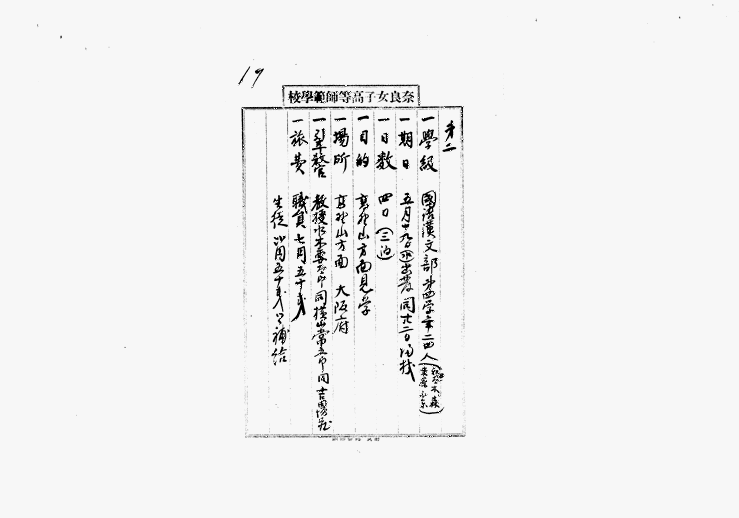 19
奈良女子高等師範學校
第二
一學級 國語漢文部第四学年二四人
一期日 五月十九日出發 同廿二日帰校
一日数 四日(三泊)
一目的 高野山方面見学
一場所 高野山方面 大阪府
一引率教官 教授水木要太郎 同横山常五郎 同
一旅費 職員七円五十銭
生徒 円五十銭 補給